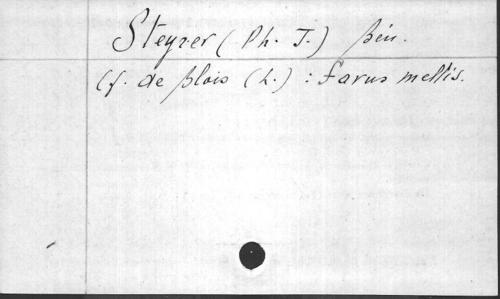 Steyrer (Ph. J.) Bén.
Cf. de Blois (L.) : Favus mellis.